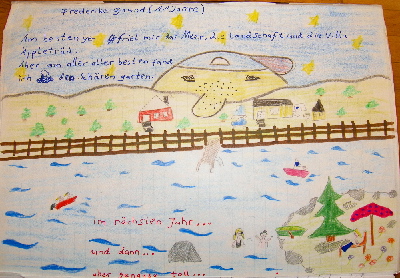 Frederike (11 Jahre)
Am gefiel mir das Meer, die Landschaft und die Villa
Äppleträd.
Aber am aller aller besten fand
ich den schären garten.
im nächsten Jahr...
und dann...
aber genauso toll...